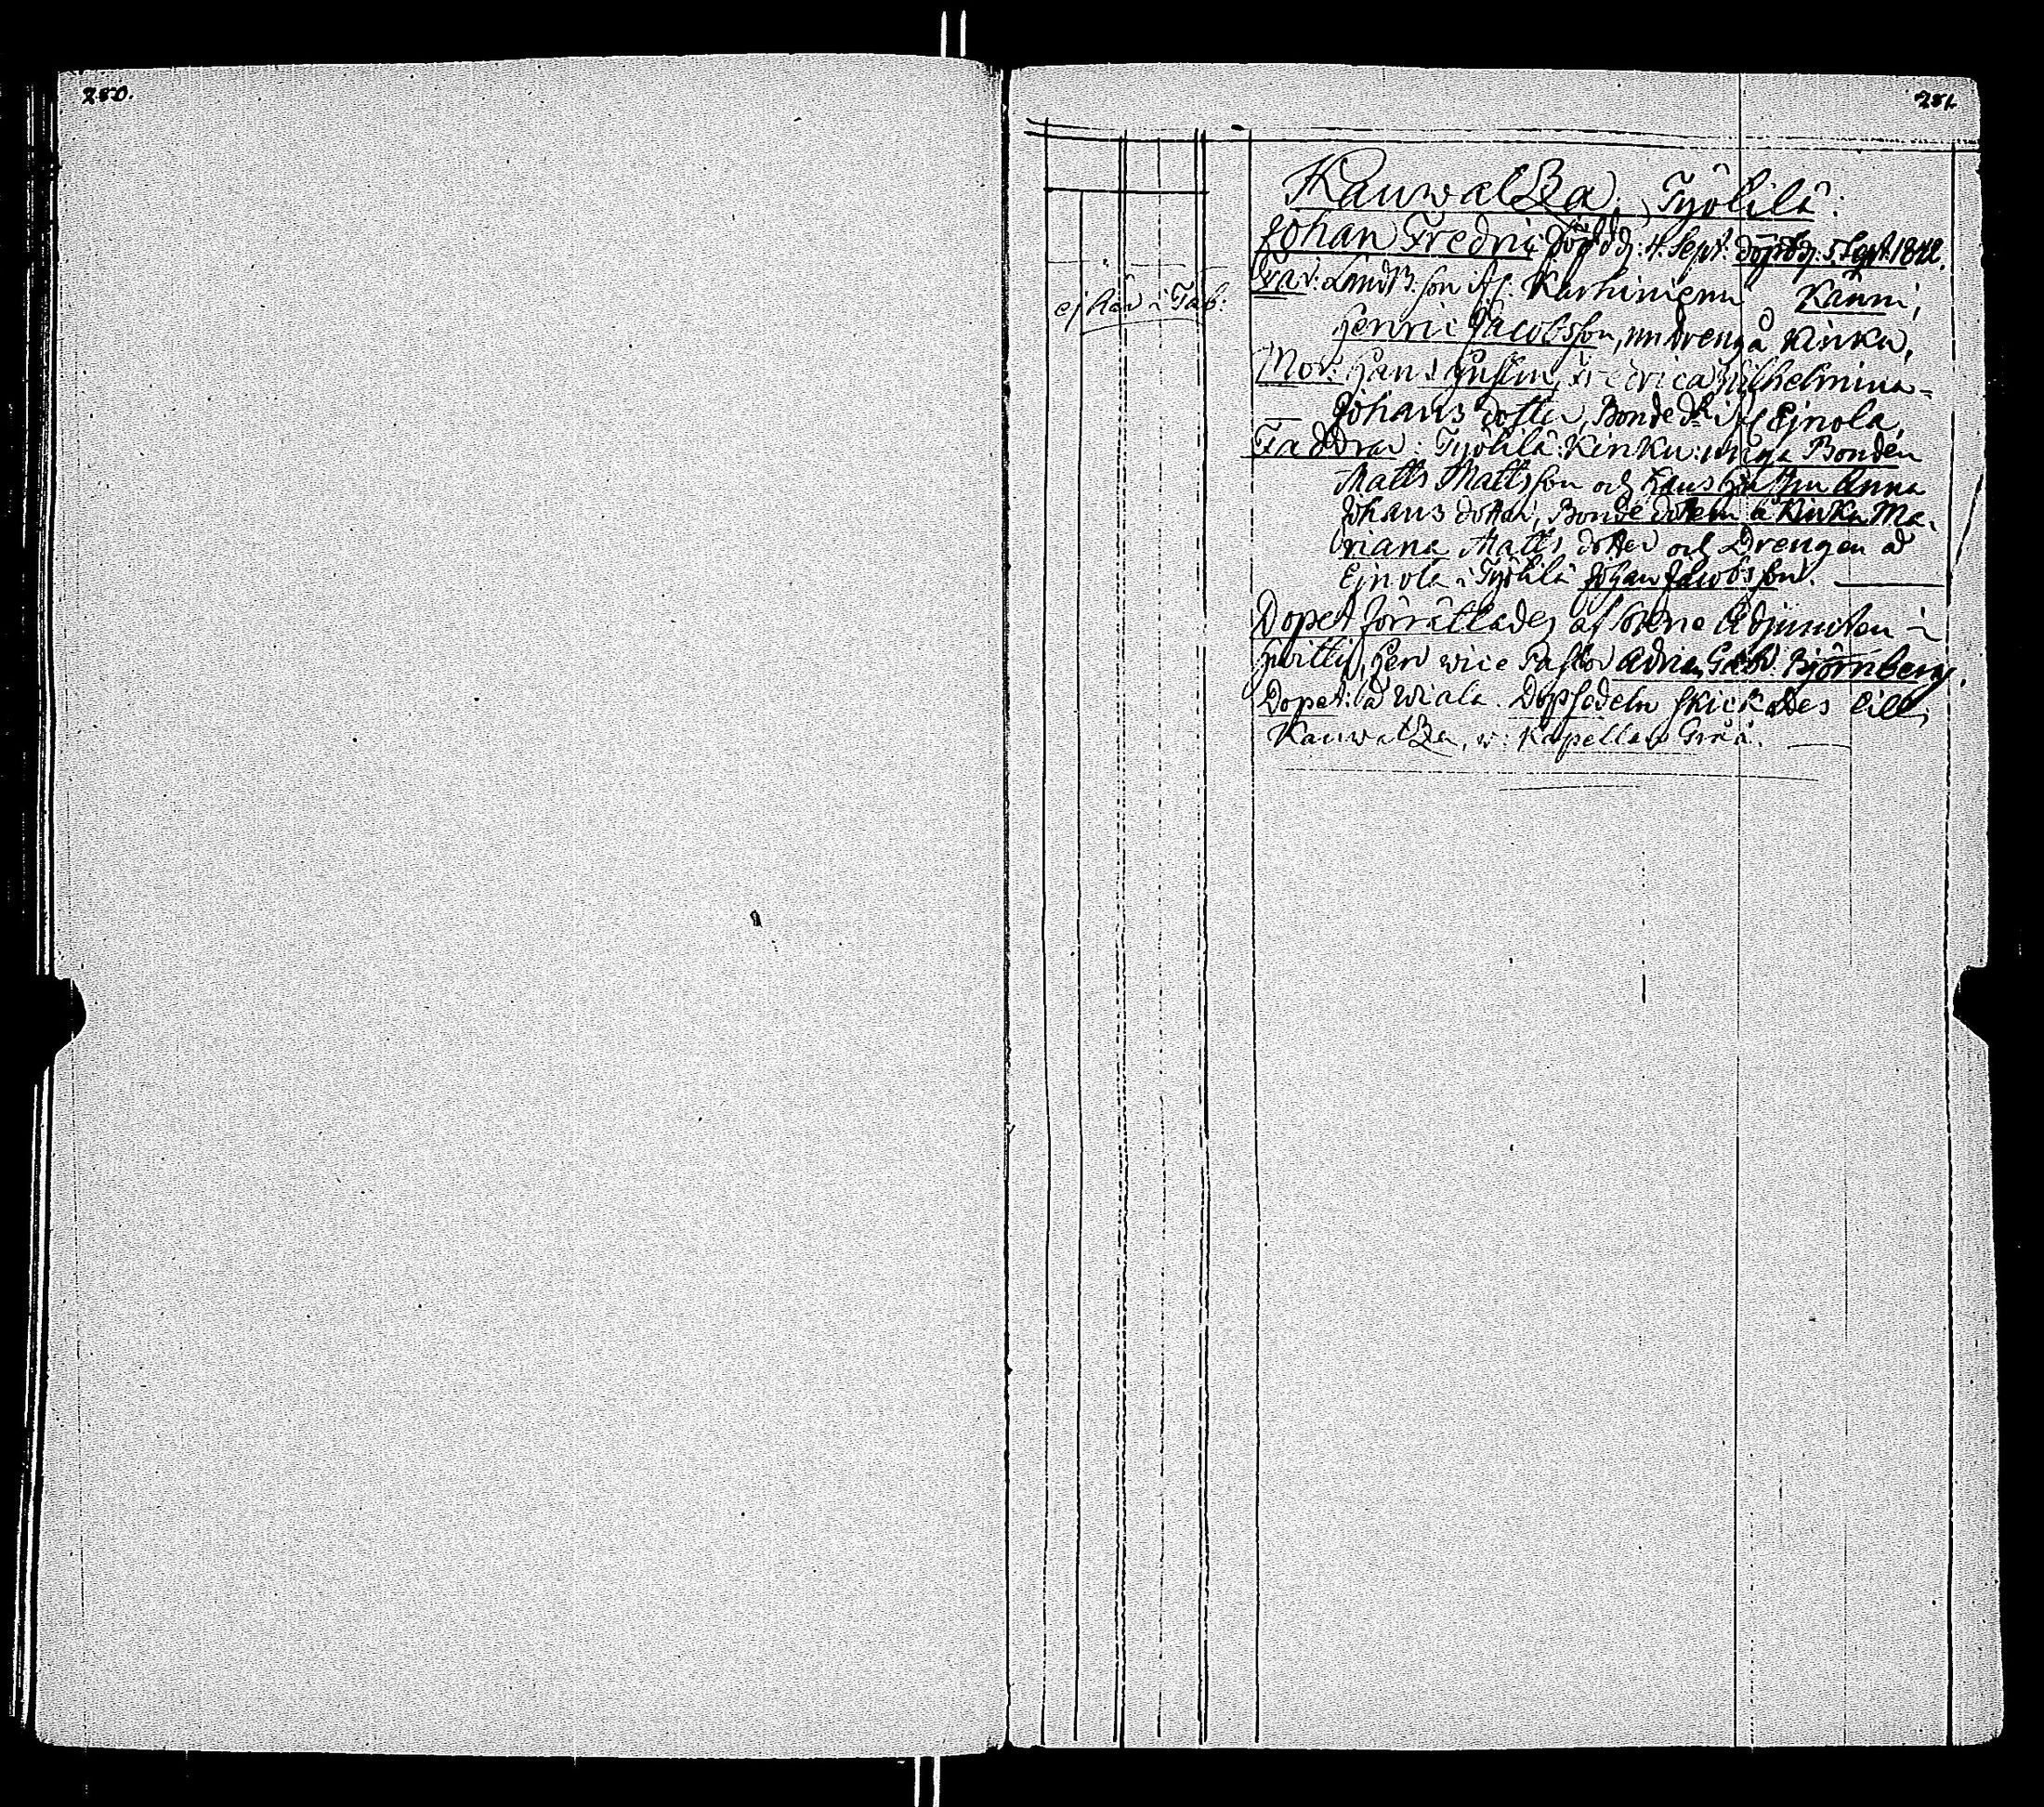 280.
281.
Kauwatza, Työlilä:
Johan Fredric född d: 4. Sept. döpt d: 5. Sept. 1842.
ej här i Tab:
Far: Landb. son ifr. Karhiniemi Kauni,
Henric Jacobsson, nu dreng å Kinku,
Mor: Hans Hustru, Fredrica Wilhelmina
Johans dotter, Bonde dr. ifr Ejnola,
Faddrar: Työlilä: Kinku: unga Bonden
Matts Mattsson och Hans Hustru Anna
Johans dotter, Bonde dottern å Kinku Ma-
riana Matts dotter och Drengen å
Ejnola i Työlilä Johan Jacobsson.
Dopet förrättades af Adjuncten i
Hvittis, Herr wice Pastor Adrian Gabr. Björnberg.
Dopet: å Wiala. Dopsedeln skickades till
Kauwatza, w: Kapellan Grää.